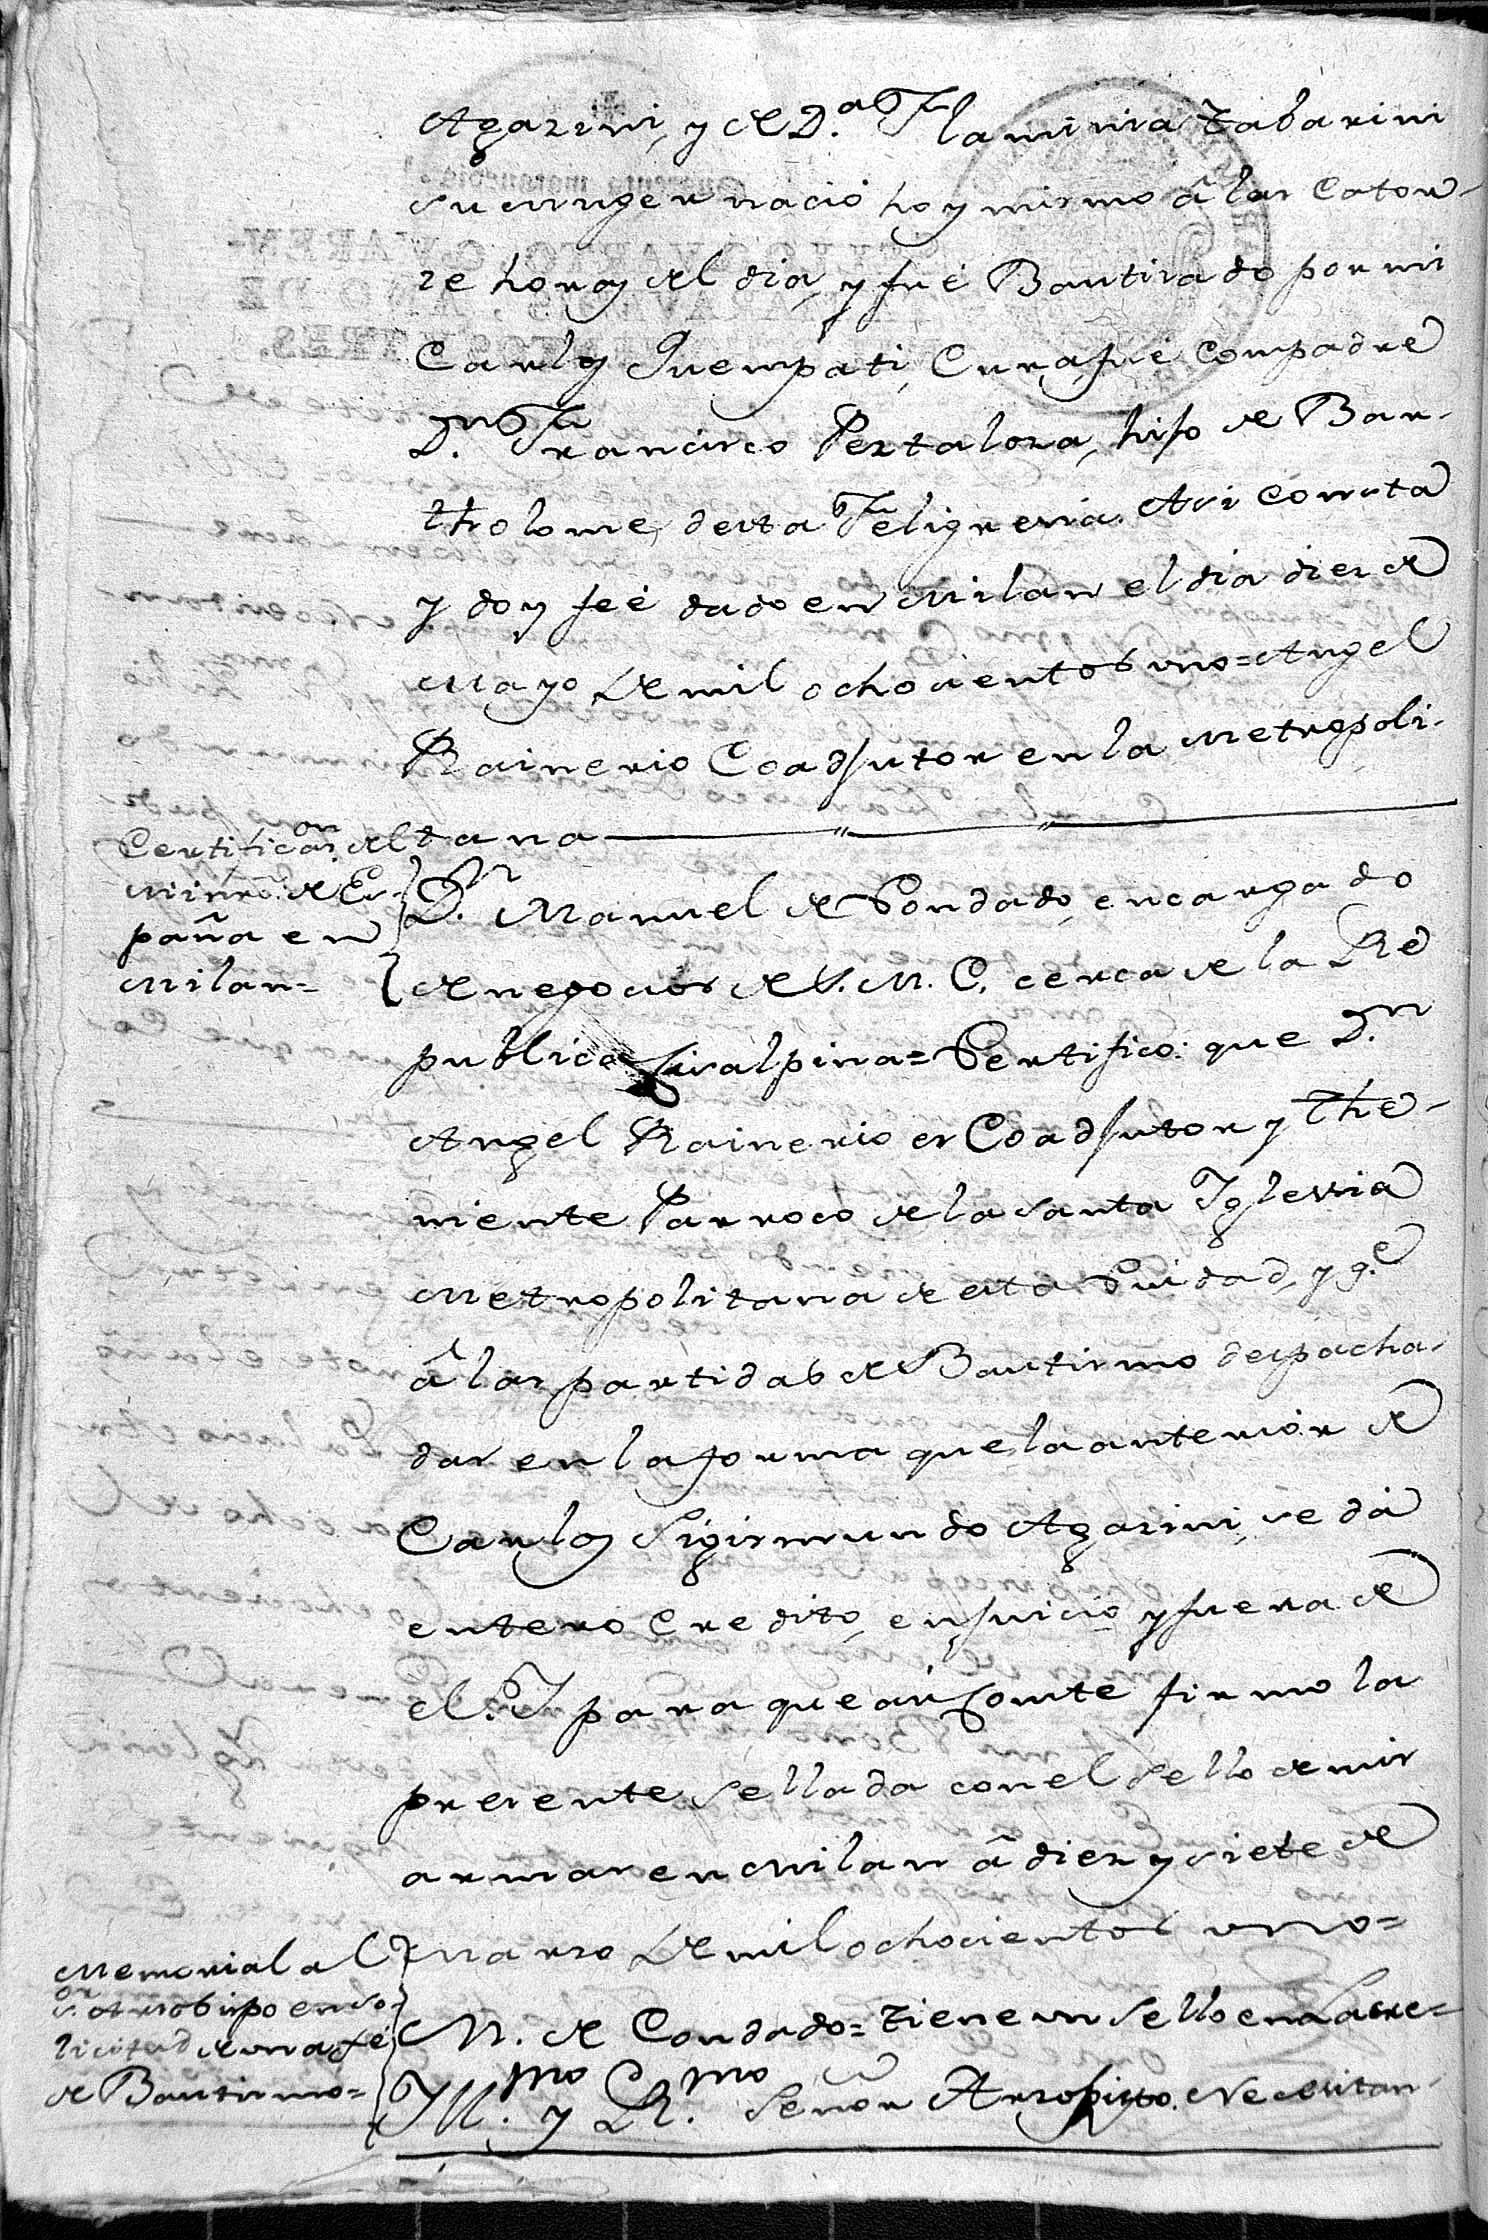 Agazini, y de D.ª Flaminia Tabarini
su muger nació hoy mismo â las Cator-
ze horas del dia, y fué Bautizado por mi
Carlos Quempati, Cura, fué Compadre
D.n Francisco Peztaloza, hijo de Bar-
tholome, desta Feligresia. Asi consta
y doy feé dado en Milan el dia diez de
Mayo de mil ochocientos uno = Angel
Rainerio Coadjutor en la Metropoli-
tana
Certificaón del
Minrô. de Es-
paña en
Milan =
D.n Manuel de Condado, encargado
de negocios de S. M. C. cerca de la Re
publica Cisalpina = Certifico: que D.n
Angel Rainerio es Coadjutor y The-
niente Parroco de la Santa Iglesia
Metropolitana de esta Ciudad, y q.e
â las partidas de Bautismo despacha-
das en la forma que la anterior de
Carlos Sigismundo Agazini, se dá
entero Credito, en juicio, y fuera de
el. Y para que asi Conste firmo la
presente sellada con el sello de mis
armas en Milan â diez y siete de
Marzo de mil ochocientos uno =
M. de Condado = tiene un sello en Lacre =
Memorial al
S.or Arzobispo en so-
licitud de una fé
de Bautismo =
Ill.mo y R.mo Señor Arzobispo. Necesitan-